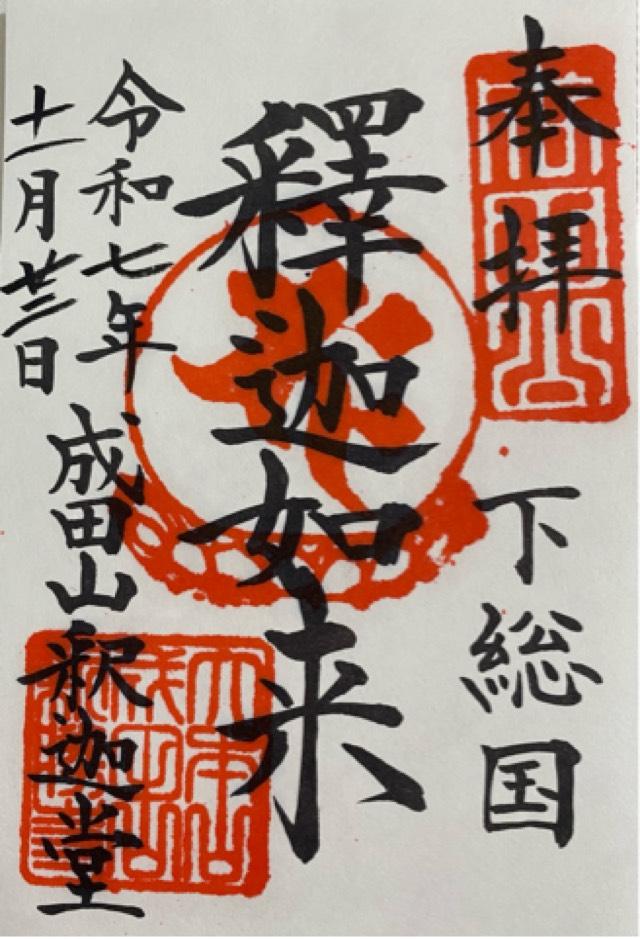 奉拝
下総国
釋迦如来
令和七年
十一月廿三日
成田山釈迦堂